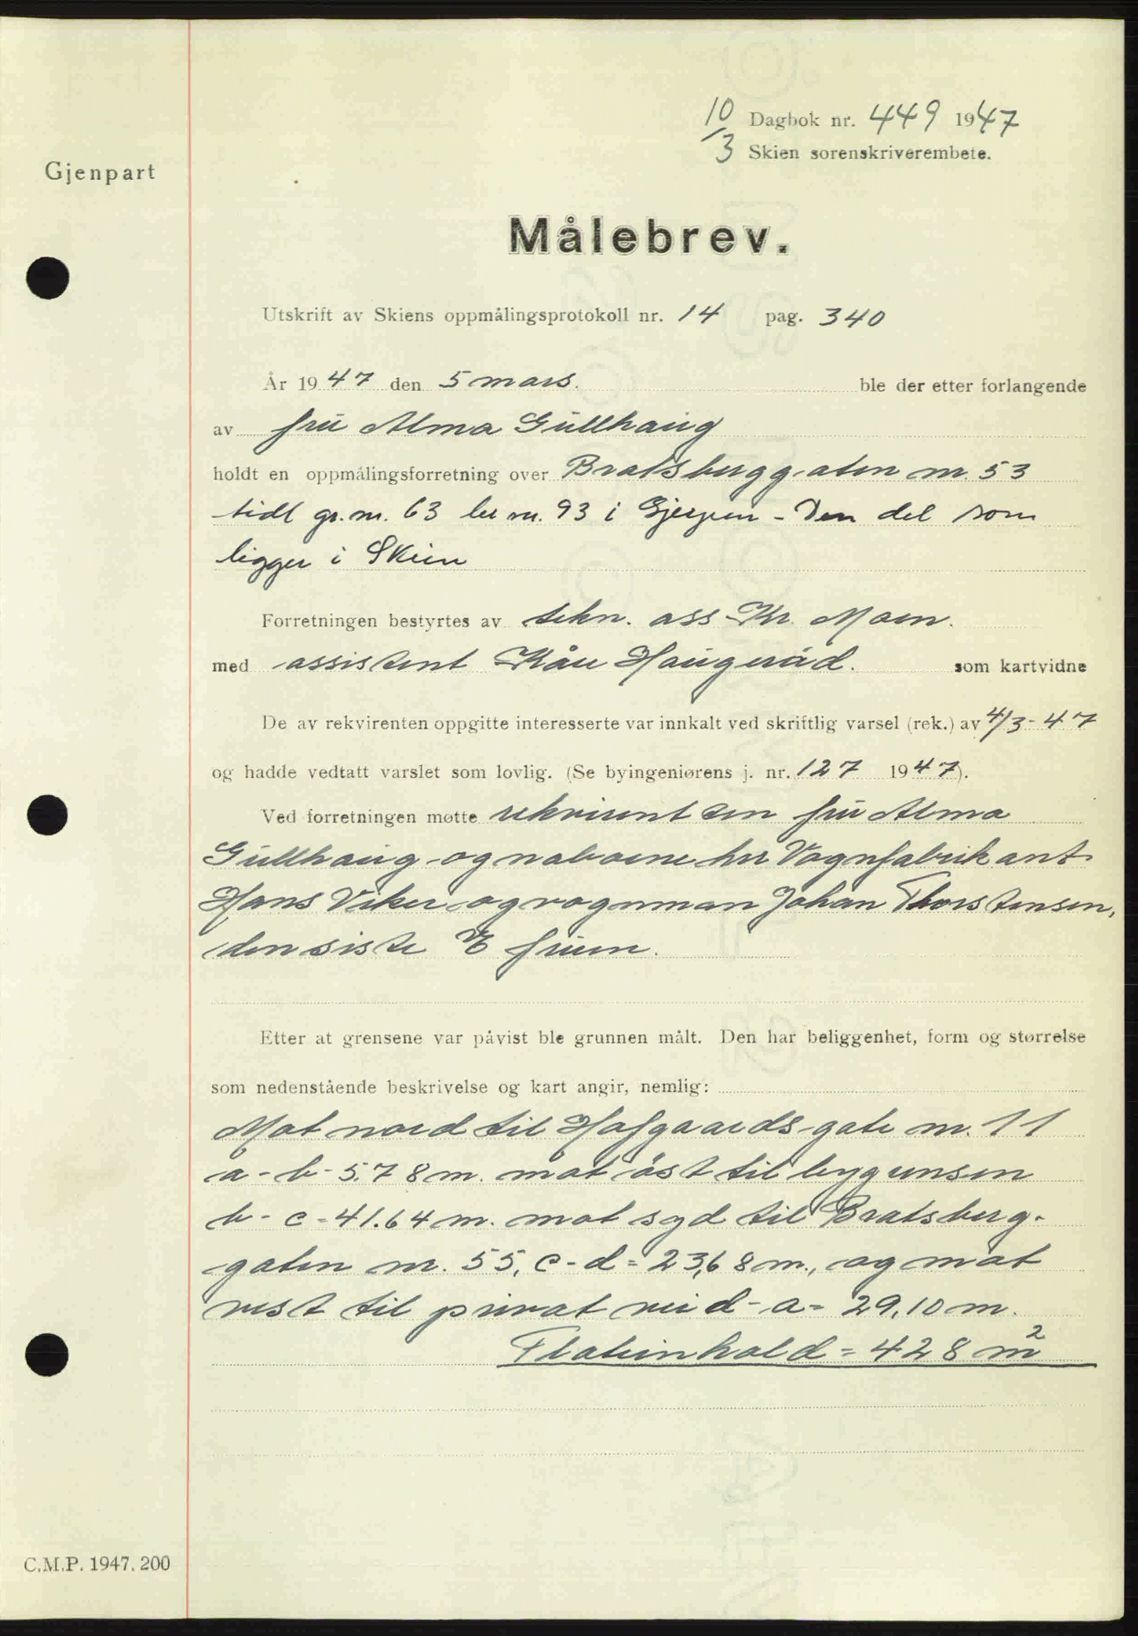 10/3 Dagbok nr. 449 1947
Skien sorenskriverembete.
Gjenpart
Målebrev.
Utskrift av Skiens oppmålingsprotokoll nr. 14 pag. 340
År 1947 den 5 mars. ble der etter forlangende
av fru Alma Gullhaug
holdt en oppmålingsforretning over Bratsberggaten nr. 53
tidl gr.nr. 63 br.nr. 93 i Gjerpen - Den del som
ligger i Skien
Forretningen bestyrtes av tekn. ass Kr. Moen.
med assistent Kåre Haugerød. som kartvidne
De av rekvirenten oppgitte interesserte var innkalt ved skriftlig varsel (rek.) av 4/3-47
og hadde vedtatt varslet som lovlig. (Se byingeniørens j. nr. 127 1947).
Ved forretningen møtte rekvirenten fru Alma
Gullhaug og naboene hr Vognfabrikant
Hans Viker og vognman Johan Thorstensen,
den siste fruen.
Etter at grensene var påvist ble grunnen målt. Den har beliggenhet, form og størrelse
som nedenstående beskrivelse og kart angir, nemlig:
Mot nord til Hofgaards-gate nr. 11
a - b - 5.78 m. mot öst til bygrensen
b - c = 41.64 m. mot syd til Bratsberg-
gaten nr. 55, c - d = 23,68 m., og mot
vest til privat vei d - a = 29,10 m.
Flateinhold = 428 m2
C.M.P. 1947. 200